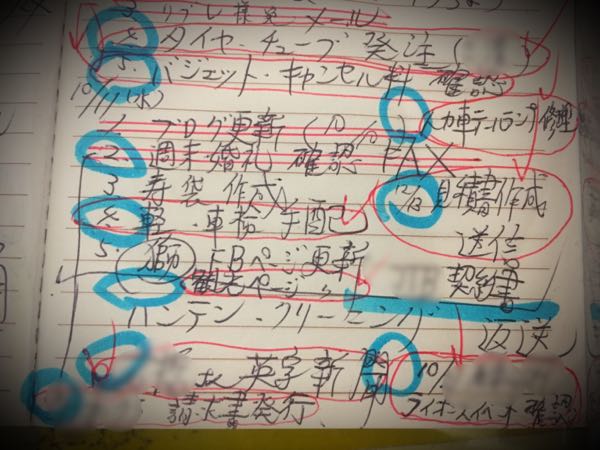 3 リブレ様宛 メール
4 タイヤ・チューブ 発注 (
5. バジェット・キャンセル料 確認
10/11 (水)
1 ブログ更新 (10/10)
人力車テールランプ 修理
2. 週末婚礼 確認 FAX
3 寿袋 作成
4 軽・車輪 手配
12/13 見積書作成
送信
5 FBページ更新
観光ページ 〃
契約書
ハンテン・クリーニング
返送
英字新聞
10/
請求書発行
イベント 確認